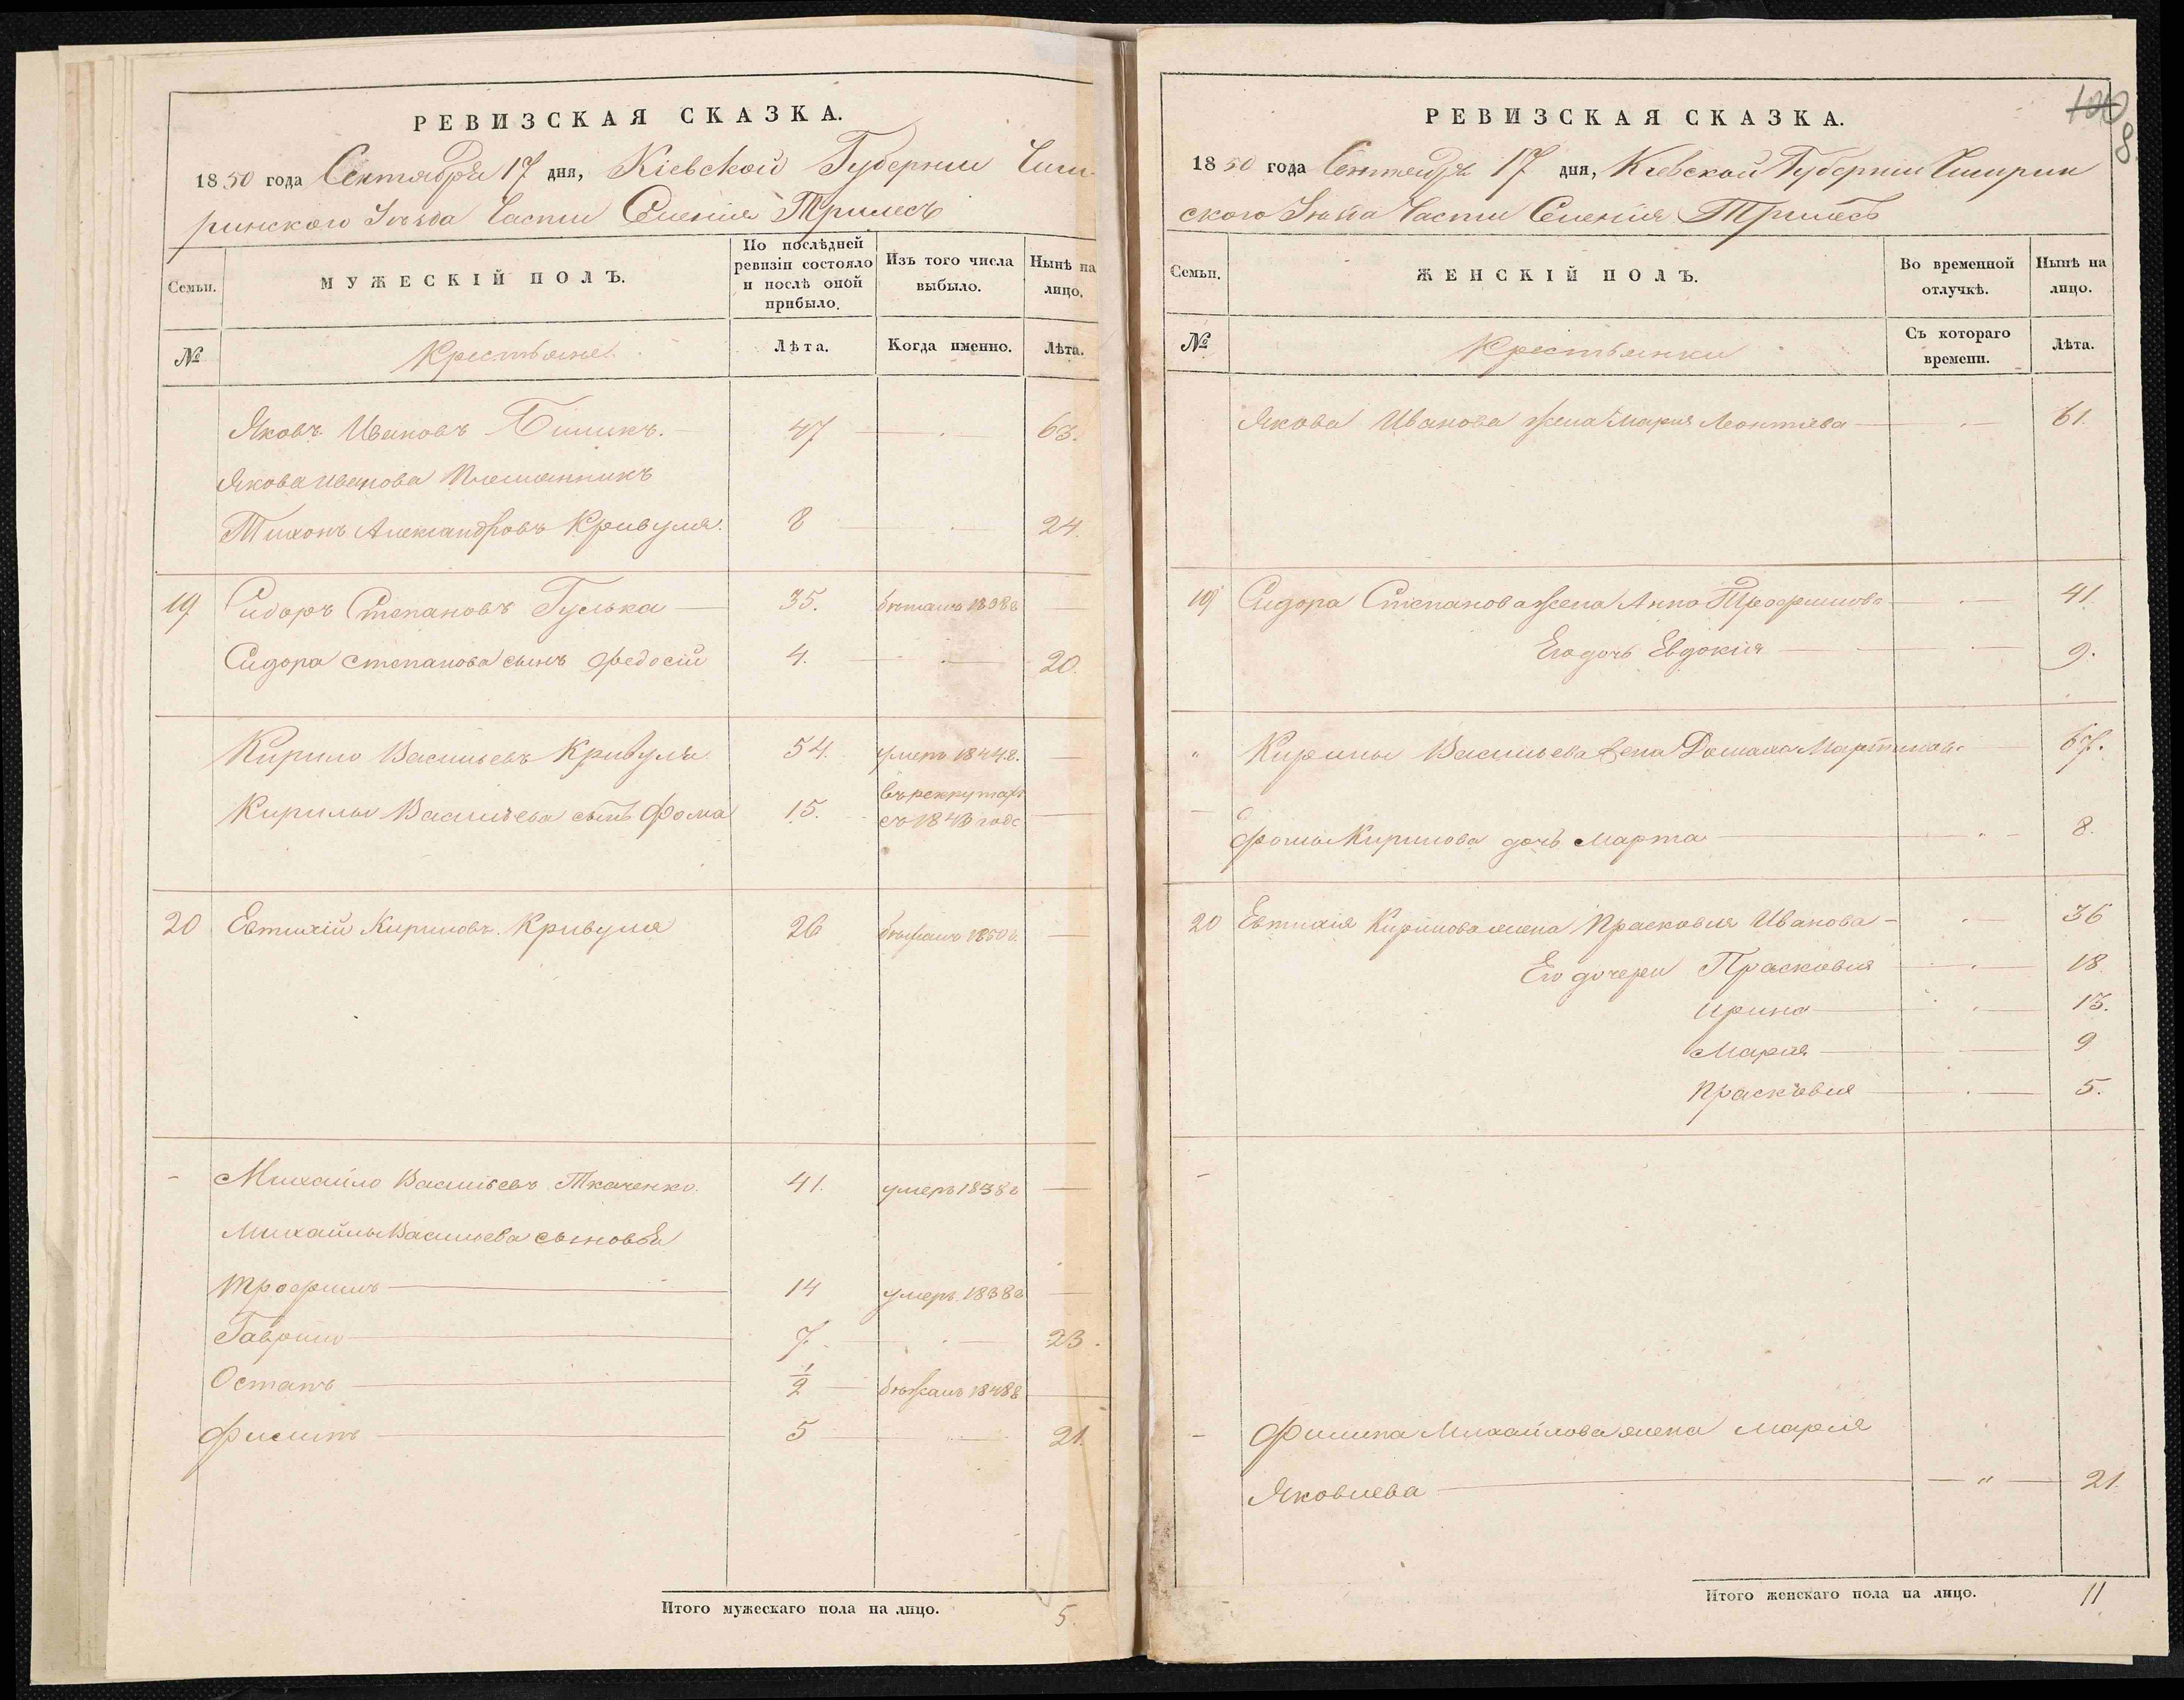 РЕВИЗСКАЯ СКАЗКА.
1850 года Сентября 17 дня, Кіевской Губерніи Чиги-
ринского Уѣзда Части Селенія Трилесъ
Семьи.
МУЖЕСКІЙ ПОЛЪ.
По послѣдней ревизіи состояло и послѣ оной прибыло.
Изъ того числа выбыло.
Нынѣ на лицо.
№
Крестьяне.
Лѣта.
Когда именно.
Лѣта.
Яковъ Ивановъ Билыкъ. 47 63.
Якова Иванова племянникъ
Тихонъ Александровъ Кривуля. 8 24.
19 Сидоръ Степановъ Гуслька 35. бѣжалъ 1838г
Сидора Степанова сынъ Федосій 4. 20.
Кирило Васильевъ Кривуля 54. умеръ 1844г.
Кирилы Васильева сынъ Фома 15. въ рекрутахъ
съ 1843 года
20 Евтихій Кириловъ Кривуля 26 бѣжалъ 1850г.
Михайло Васильевъ Ткаченко. 41. умеръ 1838г
Михайлы Васильева сыновья
Трофимъ 14 умеръ 1838г
Гаврило 7. 23.
Остапъ 1/2 бѣжалъ 1848г
Филипъ 5 21.
Итого мужескаго пола на лицо. 5.
100
8.
РЕВИЗСКАЯ СКАЗКА.
1850 года Сентября 17 дня, Кіевской Губерніи Чигирин
ского Уѣзда Части Селенія Трилесъ
Семьи.
ЖЕНСКІЙ ПОЛЪ.
Во временной отлучкѣ.
Нынѣ на лицо.
№
Крестьянки
Съ котораго времени.
Лѣта.
Якова Иванова жена Марія Леонтіева 61.
19 Сидора Степанова жена Анна Трофимова 41.
Его дочь Евдокія 9.
" Кирилы Васильева жена Домаха Мартинова 67.
Фомы Кирилова дочь Марта " 8.
20 Евтихія Кирилова жена Прасковія Иванова 36
Его дочери Прасковія 18.
Ирина 13.
Марія 9
Прасковія 5.
Филипа Михайлова жена Марія
Яковлева " 21.
Итого женскаго пола на лицо. 11